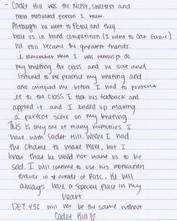 - Cadet Hill was the nicest, sweetest and
most motivated person I knew.
Although he went to Petal and they
beat us in band competition (I went to East Central)
he still became the greatest friend.
I remember when I was nervous to do
my briefing for class and he sat and
listened to me practice my briefing and
also critiqued me before I had to present
it to the class. I took his feedback and
applied it and I ended up making
a perfect score on my briefing.
This is only one of many memories I
have with Cadet Hill. Wish I had
the chance to make more, but I
know that he would not want us to be
sad. I will continue to use his motivation
in & outside of ROTC. He will
always have a special place in my
heart
DET 432 will not be the same without
Cadet Hill